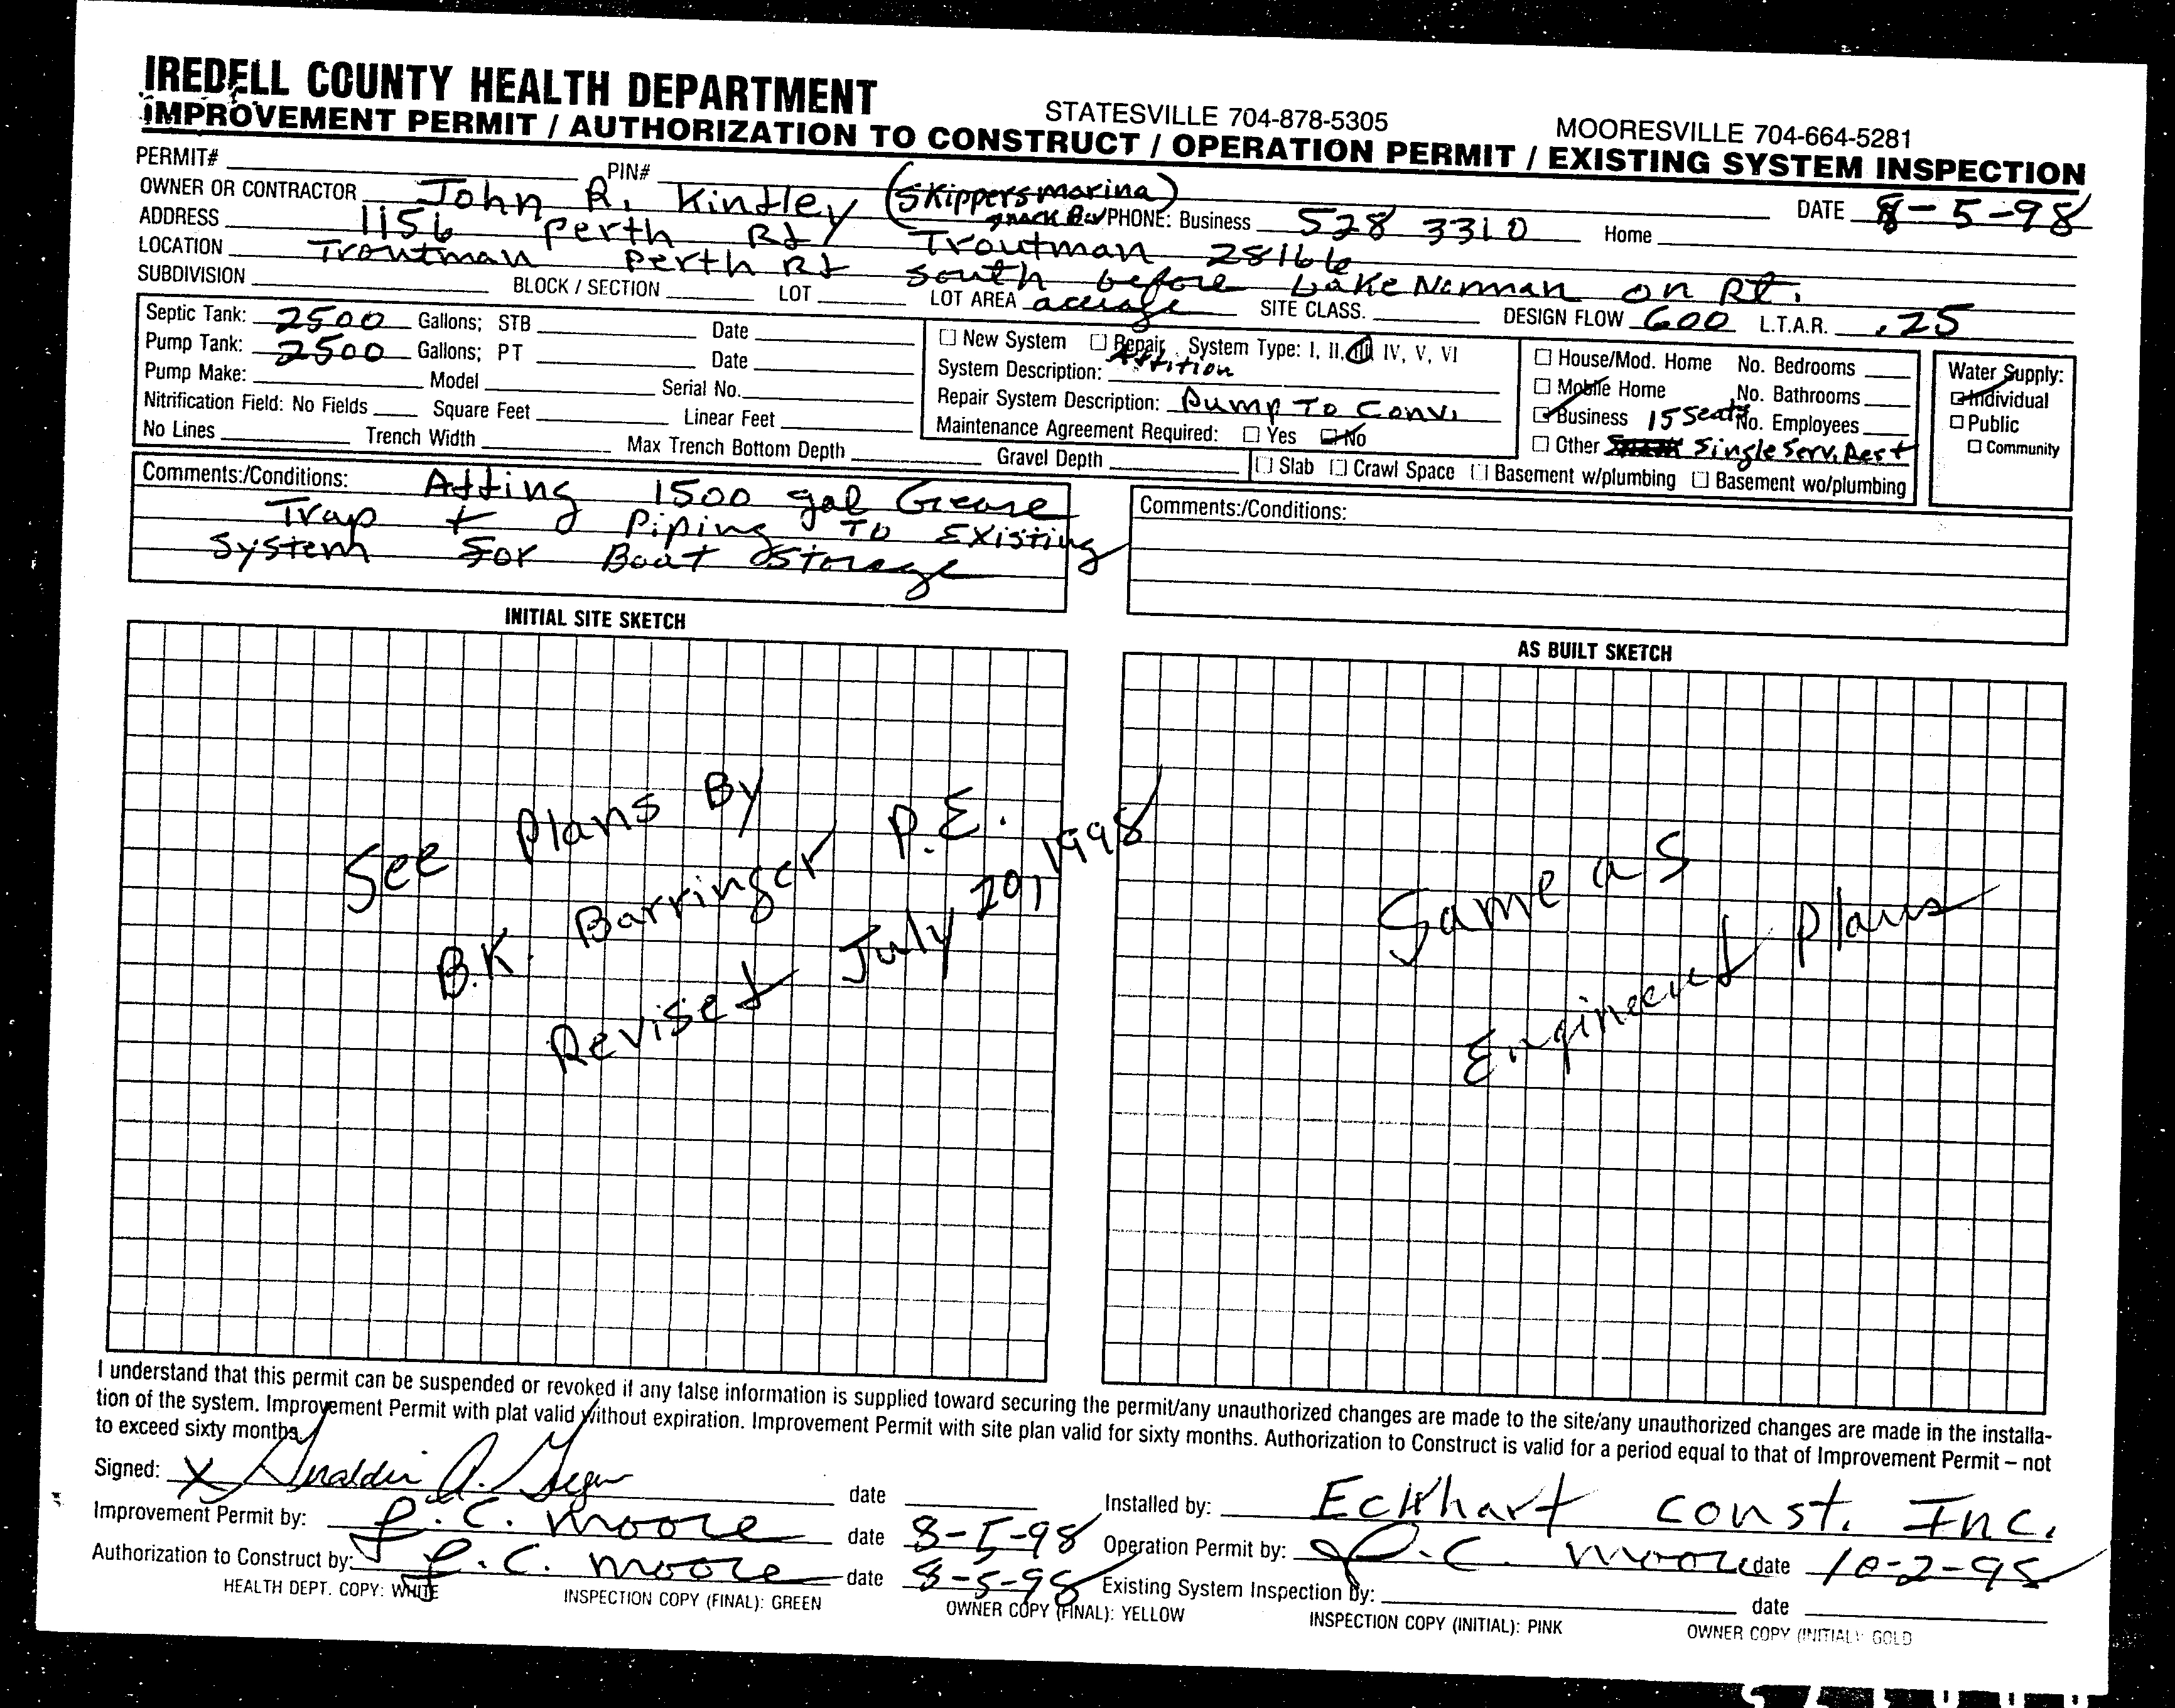 IREDELL COUNTY HEALTH DEPARTMENT
STATESVILLE 704-878-5305 MOORESVILLE 704-664-5281
IMPROVEMENT PERMIT / AUTHORIZATION TO CONSTRUCT / OPERATION PERMIT / EXISTING SYSTEM INSPECTION
PERMIT# PIN#
OWNER OR CONTRACTOR John R. Kindley (Skippers marina) DATE 8-5-98
ADDRESS 1156 Perth Rd Troutman 28166 snack Bar PHONE: Business 528 3310 Home
LOCATION Troutman Perth Rd south before Lake Norman on Rt.
SUBDIVISION BLOCK / SECTION LOT LOT AREA acerage SITE CLASS. DESIGN FLOW 600 L.T.A.R. .25
Septic Tank: 2500 Gallons; STB Date
Pump Tank: 2500 Gallons; PT Date
Pump Make: Model Serial No.
Nitrification Field: No Fields Square Feet Linear Feet
No Lines Trench Width Max Trench Bottom Depth Gravel Depth
New System Repair System Type: I, II, III, IV, V, VI
Addition
System Description:
Repair System Description: Pump To Conv.
Maintenance Agreement Required: Yes No
House/Mod. Home No. Bedrooms
Mobile Home No. Bathrooms
Business 15 Seats No. Employees
Other Single Serv. Rest
Slab Crawl Space Basement w/plumbing Basement wo/plumbing
Water Supply:
Individual
Public
Community
Comments:/Conditions: Adding 1500 gal Grease
Trap + Piping TO EXisting
System For Boat Storage
Comments:/Conditions:
INITIAL SITE SKETCH
See Plans By
B.K. Barringer P.E.
Revised July 20, 1998
AS BUILT SKETCH
Same as
Engineered Plans
I understand that this permit can be suspended or revoked if any false information is supplied toward securing the permit/any unauthorized changes are made to the site/any unauthorized changes are made in the installa-
tion of the system. Improvement Permit with plat valid without expiration. Improvement Permit with site plan valid for sixty months. Authorization to Construct is valid for a period equal to that of Improvement Permit – not
to exceed sixty months.
Signed: X date
Improvement Permit by: J.C. Moore date 8-5-98
Authorization to Construct by: J.C. Moore date 8-5-98
Installed by: Eckhart Const. Inc.
Operation Permit by: J.C. Moore date 10-2-98
Existing System Inspection by: date
HEALTH DEPT. COPY: WHITE INSPECTION COPY (FINAL): GREEN OWNER COPY (FINAL): YELLOW INSPECTION COPY (INITIAL): PINK OWNER COPY (INITIAL): GOLD